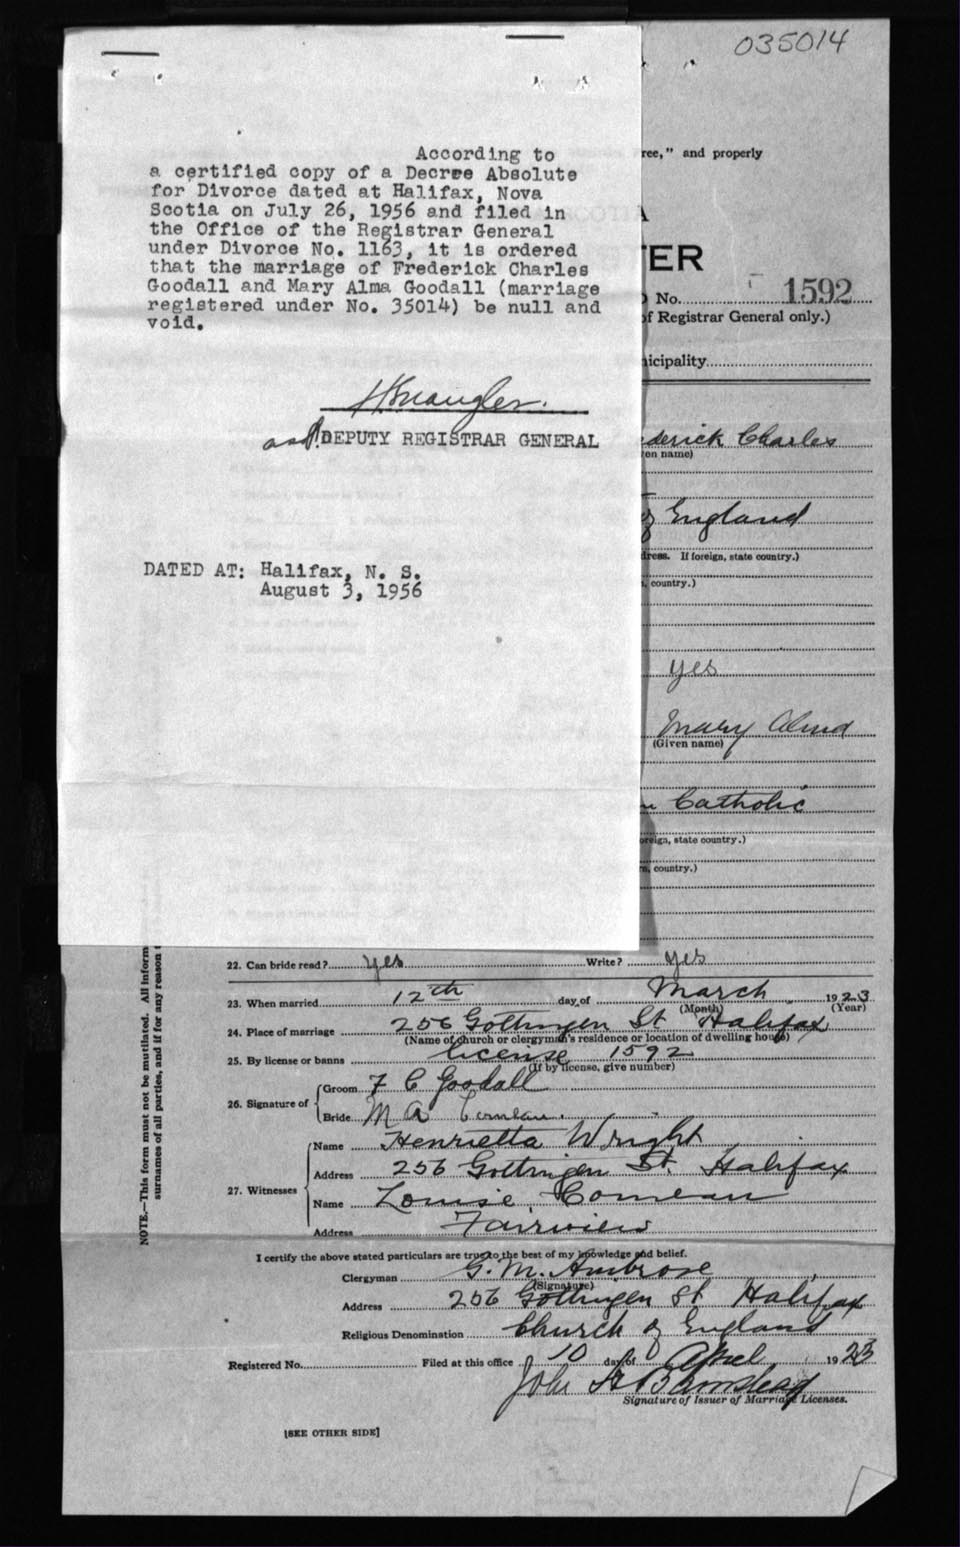 035014
ree," and properly
According to
a certified copy of a Decree Absolute
for Divorce dated at Halifax, Nova
Scotia on July 26, 1956 and filed in
the Office of the Registrar General
under Divorce No. 1163, it is ordered
that the marriage of Frederick Charles
Goodall and Mary Alma Goodall (marriage
registered under No. 35014) be null and
void.
DEPUTY REGISTRAR GENERAL
DATED AT: Halifax, N. S.
August 3, 1956
A
ER
No. 1592
of Registrar General only.)
icipality
derick Charles
en name)
of England
dress. If foreign, state country.)
, country.)
yes
Mary Alma
(Given name)
n Catholic
oreign, state country.)
n, country.)
NOTE.—This form must not be mutilated. All inform
surnames of all parties, and if for any reason
22. Can bride read? yes Write? yes
23. When married 12th day of March 1923
(Month) (Year)
24. Place of marriage 256 Gottingen St Halifax
(Name of church or clergyman's residence or location of dwelling house)
25. By license or banns license 1592
(If by license, give number)
26. Signature of
Groom F C Goodall
Bride M A Comeau.
27. Witnesses
Name Henrietta Wright
Address 256 Gottingen St. Halifax
Name Louise Comeau
Address Fairview
I certify the above stated particulars are true to the best of my knowledge and belief.
Clergyman G. M. Ambrose
(Signature)
Address 256 Gottingen St Halifax
Religious Denomination Church of England
Registered No. Filed at this office 10 day of April 1923
John
Signature of Issuer of Marriage Licenses.
[SEE OTHER SIDE]